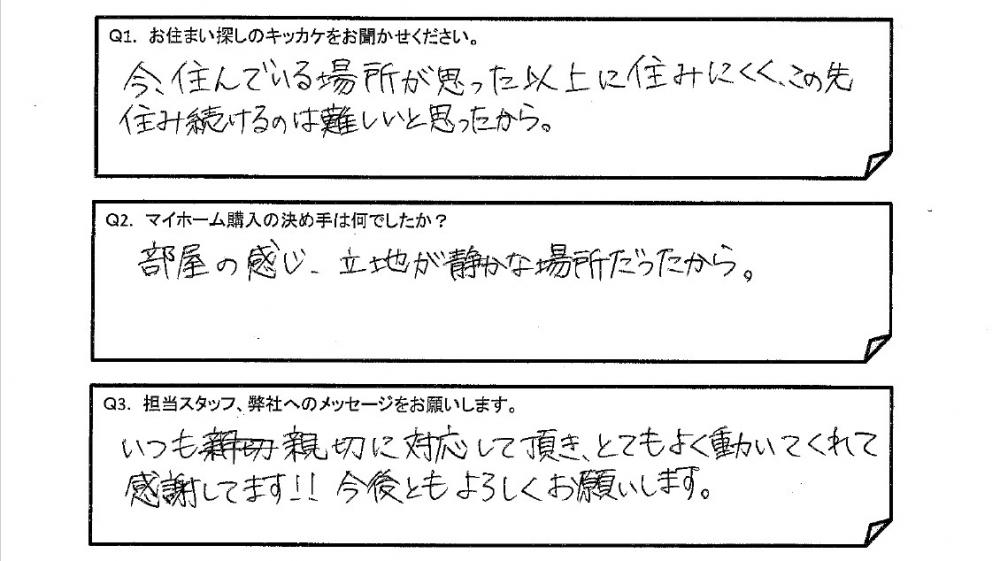 Q1. お住まい探しのキッカケをお聞かせください。
今、住んでいる場所が思った以上に住みにくく、この先
住み続けるのは難しいと思ったから。
Q2. マイホーム購入の決め手は何でしたか？
部屋の感じ、立地が静かな場所だったから。
Q3. 担当スタッフ、弊社へのメッセージをお願いします。
いつも親切に対応して頂き、とてもよく動いてくれて
感謝してます!! 今後ともよろしくお願いします。